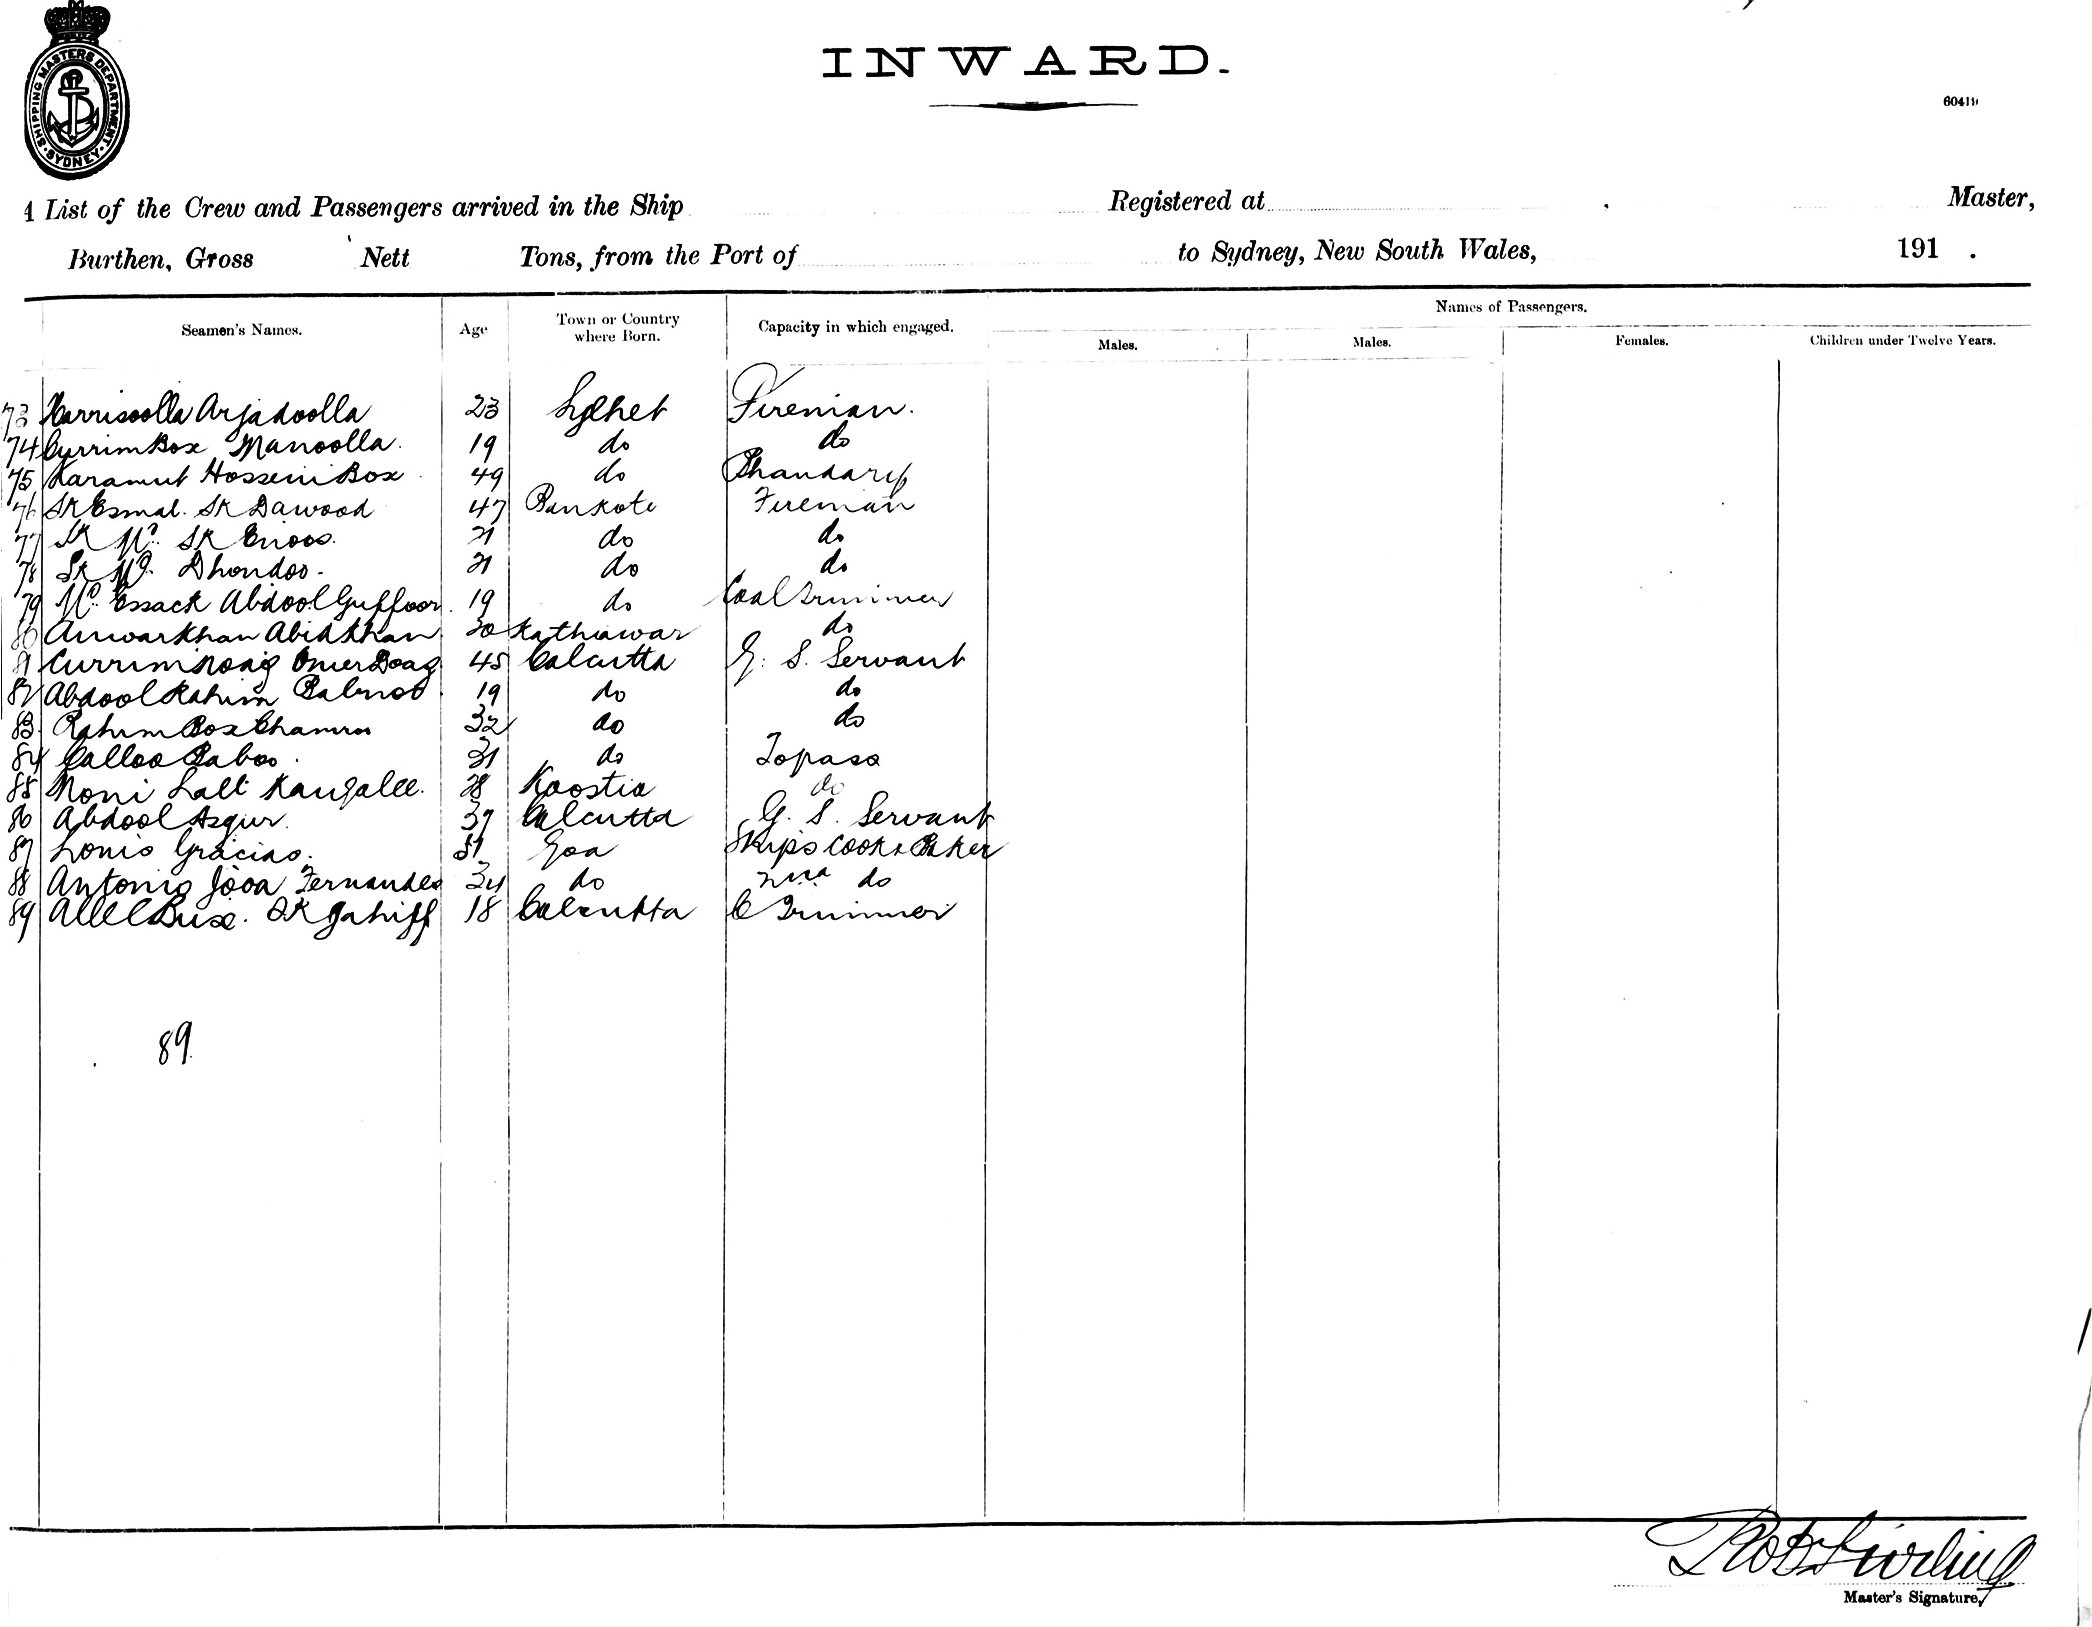 SHIPPING MASTERS DEPARTMENT · SYDNEY ·
INWARD.
60411
List of the Crew and Passengers arrived in the Ship Registered at Master,
Burthen, Gross Nett Tons, from the Port of to Sydney, New South Wales, 191 .
Names of Passengers.
Seamen's Names. Age Town or Country where Born. Capacity in which engaged. Males. Males. Females. Children under Twelve Years.
73 Harrisoolla Arjadoolla 23 Sylhet Fireman.
74 Currim Box Manoolla. 19 do do
75 Karamut Hossein Box 49 do Bhandary
76 Sk Esmal. Sk Dawood 47 Bankote Fireman
77 Sk Md. Sk Enoos. 21 do do
78 Sk Md. Dhondoo. 21 do do
79 Md. Essack Abdool Guffoor. 19 do Coal Trimmer
80 Anwarkhan Abidkhan 20 Kathiawar do
81 Currim 45 Calcutta G. S. Servant
82 Abdool Rahim 19 do do
83 Rahim Box 32 do do
84 Calloo Baboo. 31 do Topass
85 Noni Lall Kangalee. 28 Koostia do
86 Abdool Azgur. 37 Calcutta G. S. Servant
87 Gracias. 31 Goa Ships Cook & Baker
88 Antonio Jooa Fernandes 34 do 2nd do
89 Allel Buse. Sk 18 Calcutta C Trimmer
89.
Master's Signature,